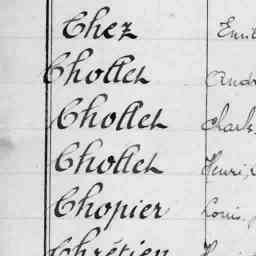 Chez Emil
Chollet André
Chollet Charles
Chollet Henri
Chopier Louis
Chrétien